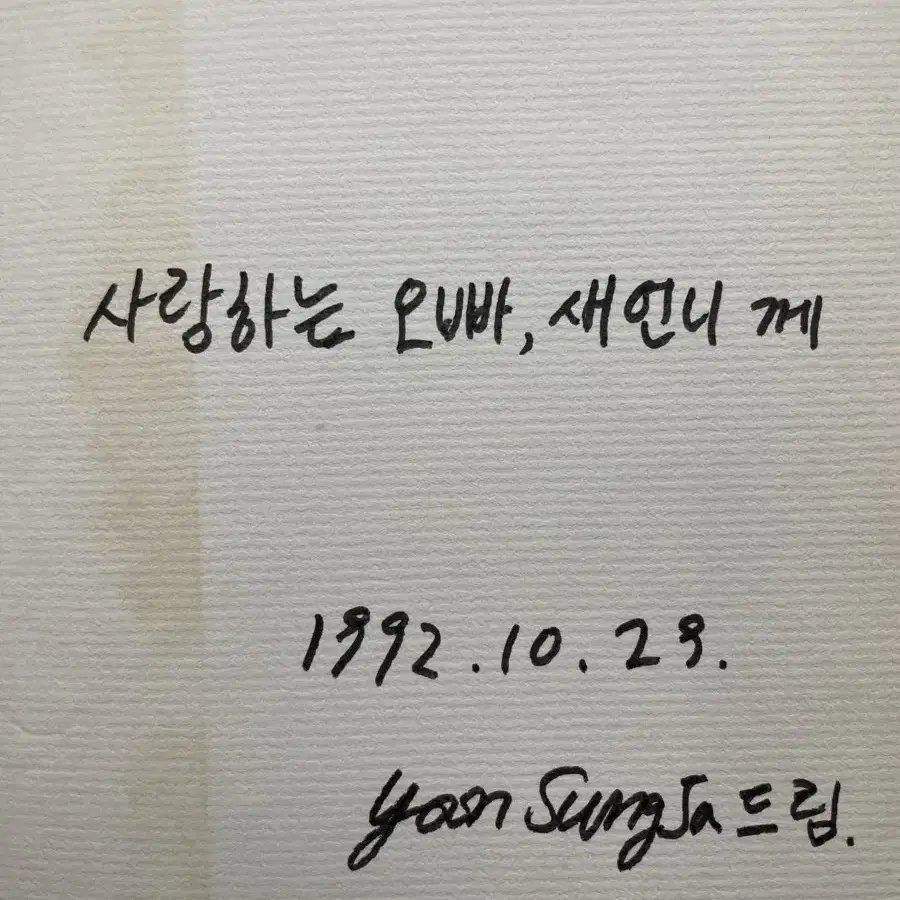 사랑하는 오빠, 새언니 께
1992.10.29.
Yoon Sung Ja 드림.